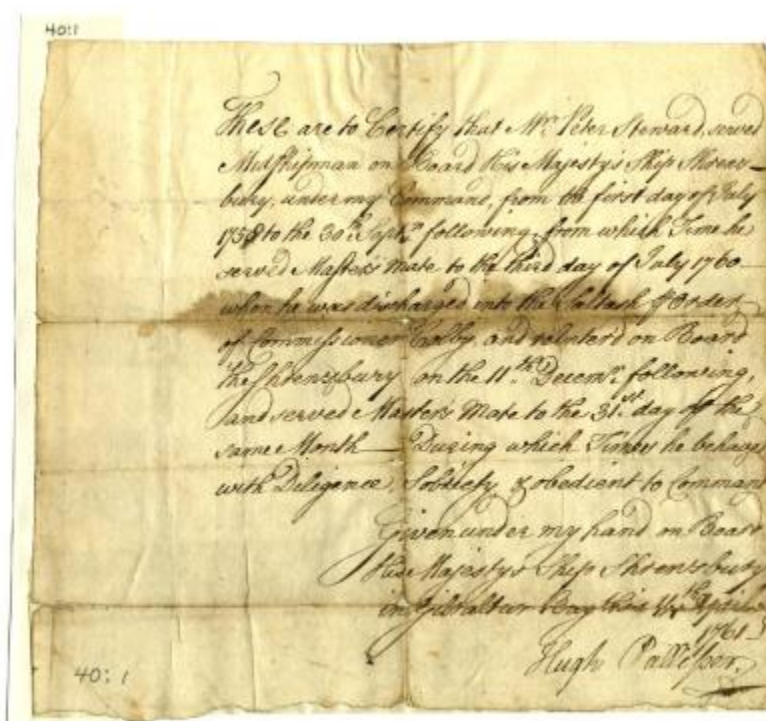 40:1
These are to Certify that Mr. Peter Steward, served
Midshipman on Board His Majesty's Ship Shrews-
bury, under my Command, from the first day of July
1758 to the 30th. Septr. following, from which Time he
served Master's Mate to the third day of July 1760
when he was discharged into the Saltash Order
of Commissioner Colby, and reinter'd on Board
the Shrewsbury on the 11th. Decemr. following,
and served Master's Mate to the 31st. day of the
same Month — During which Times he behaved
with Diligence, Sobriety & obedient to Command
Given under my hand on Board
His Majesty's Ship Shrewsbury
in Gibraltar Bay this April
1761
Hugh Pallisser
40:1